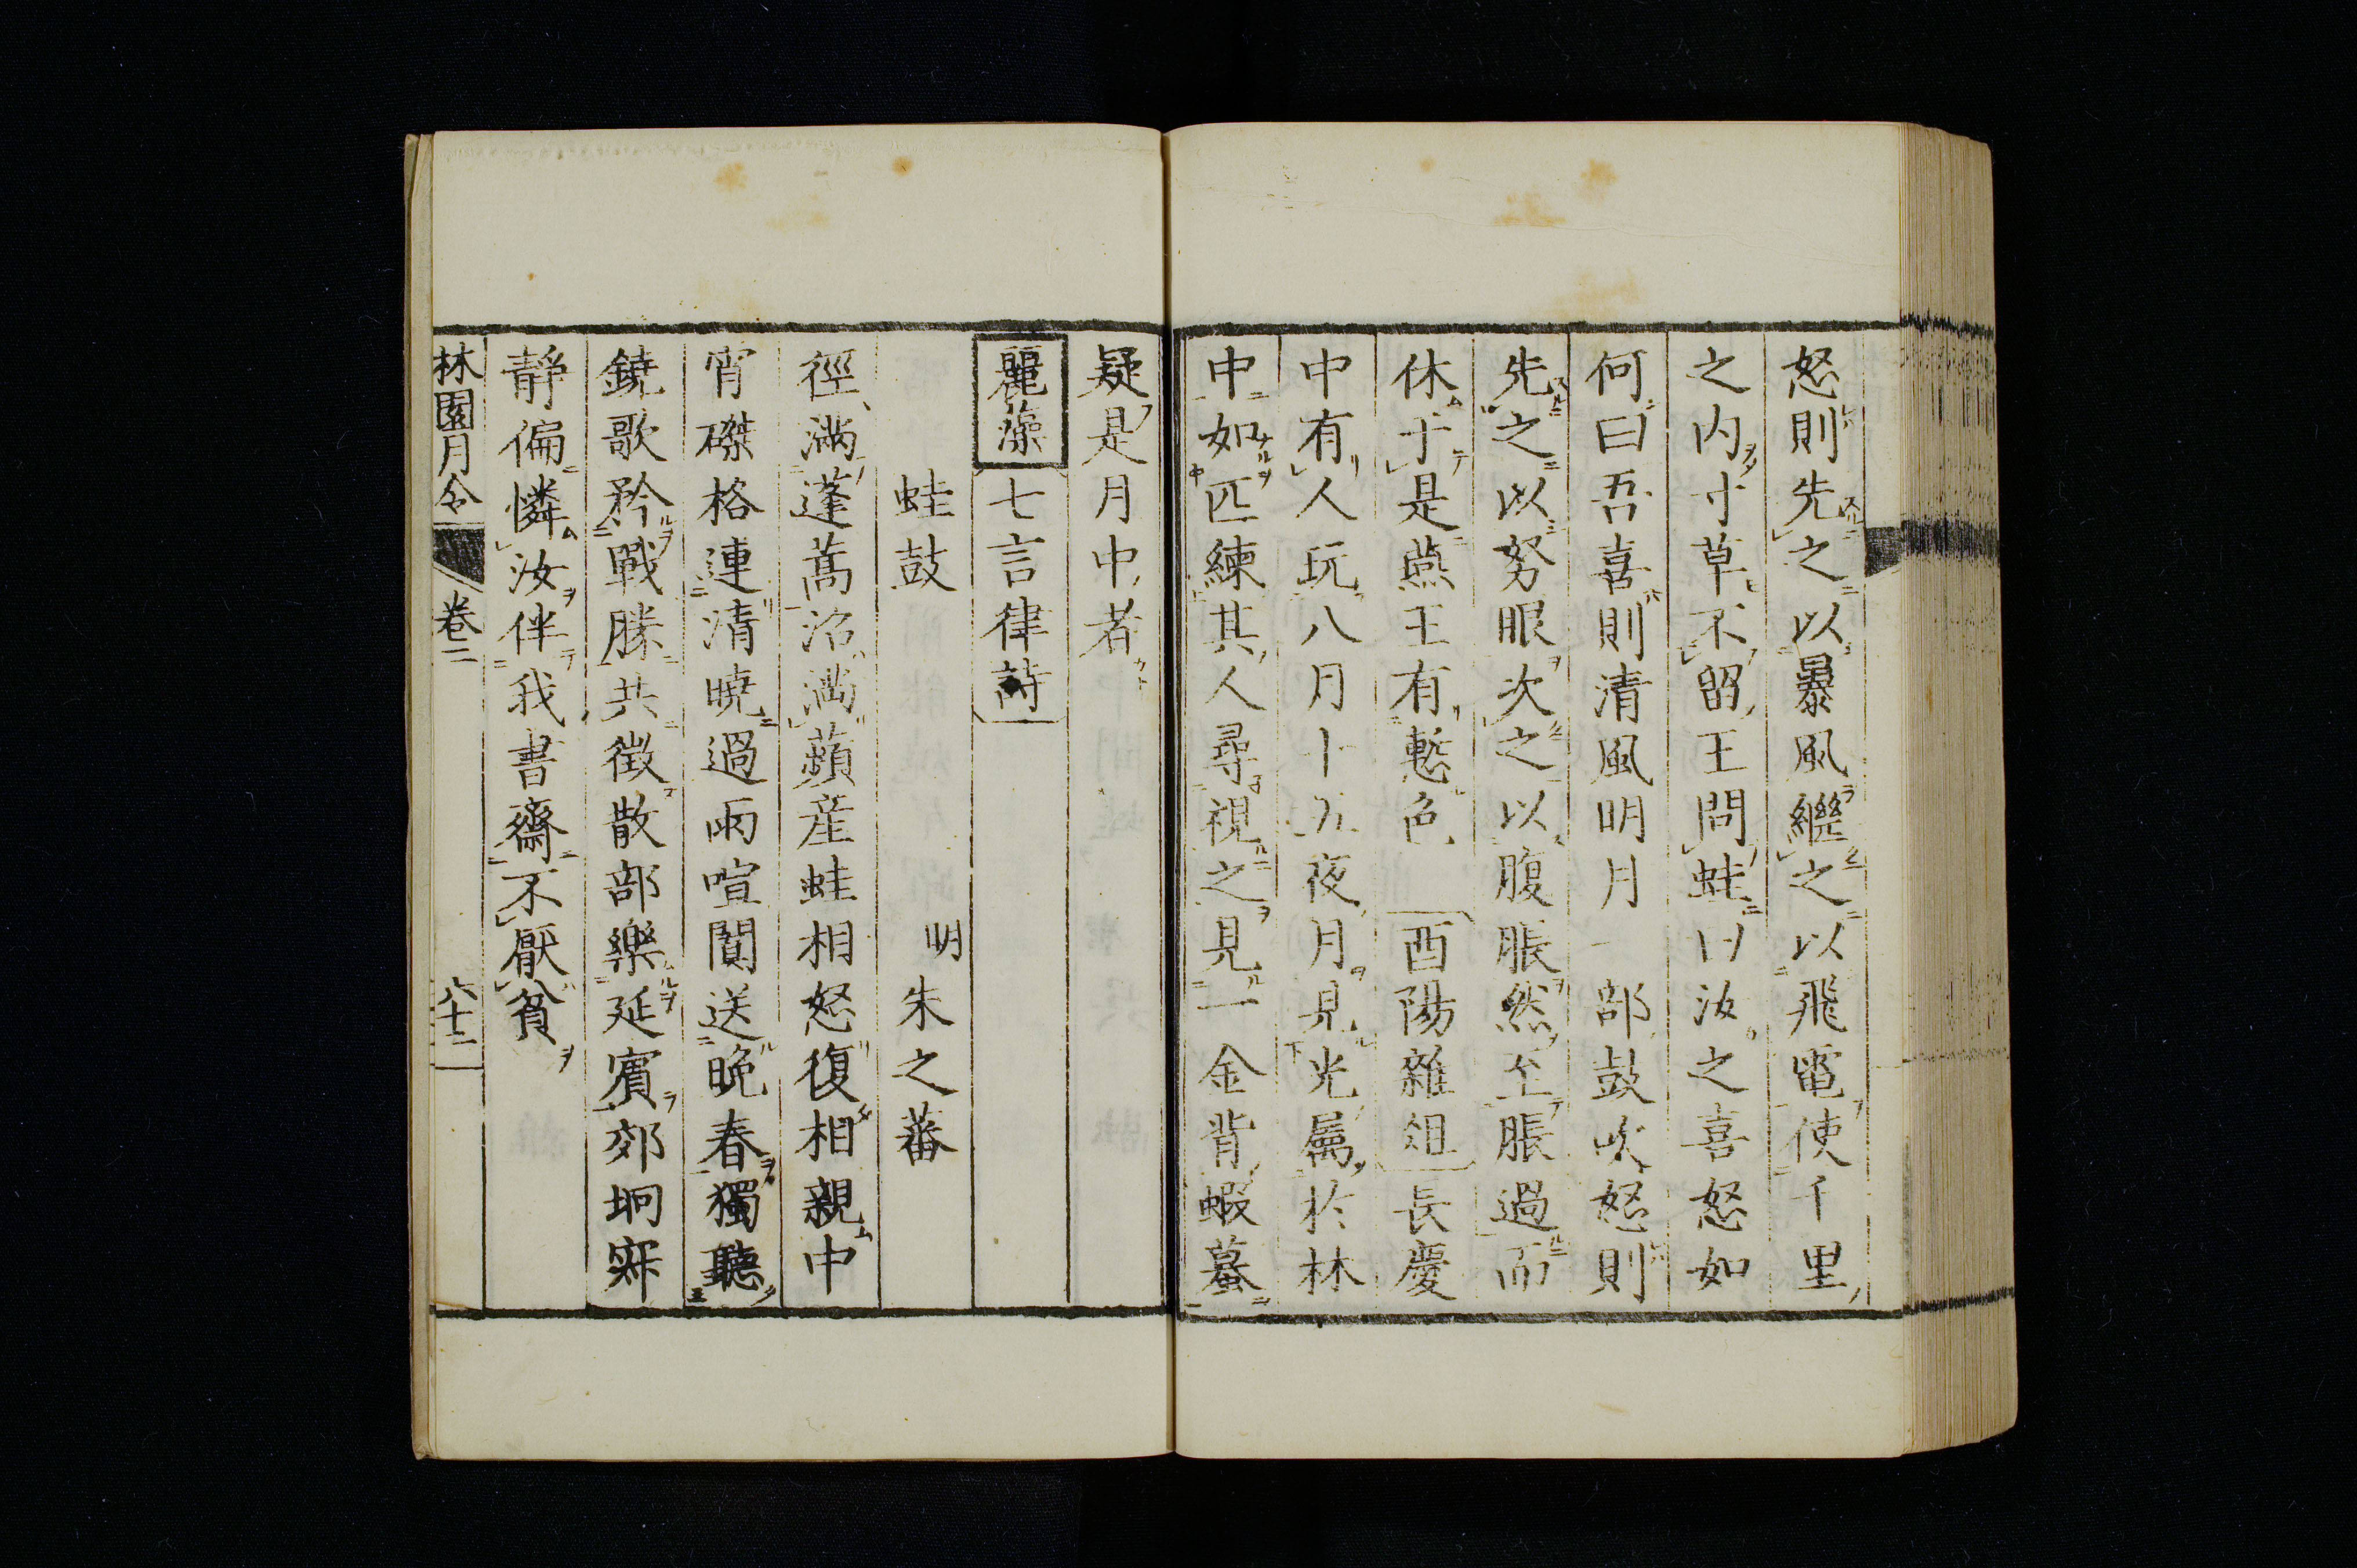 怒則先之以暴風繼之以飛電使千里
之内寸草不留王問蛙曰汝之喜怒如
何曰吾喜則清風明月一部鼓吹怒則
先之以努眼次之以腹脹然至脹過而
休于是燕王有慙色 酉陽雜俎 長慶
中有人玩八月十五夜月見光屬於林
中如匹練其人尋視之見一金背蝦蟇
疑是月中者
麗藻 七言律詩
蛙鼓 明 朱之蕃
徑滿蓬蒿沼滿蘋産蛙相怒復相親中
宵磔格連清曉過雨喧闐送晩春獨聽
鐃歌矜戰勝共徴散部樂延賓郊坰寐
靜偏憐汝伴我書齋不厭貧
林園月令 卷二 六十二